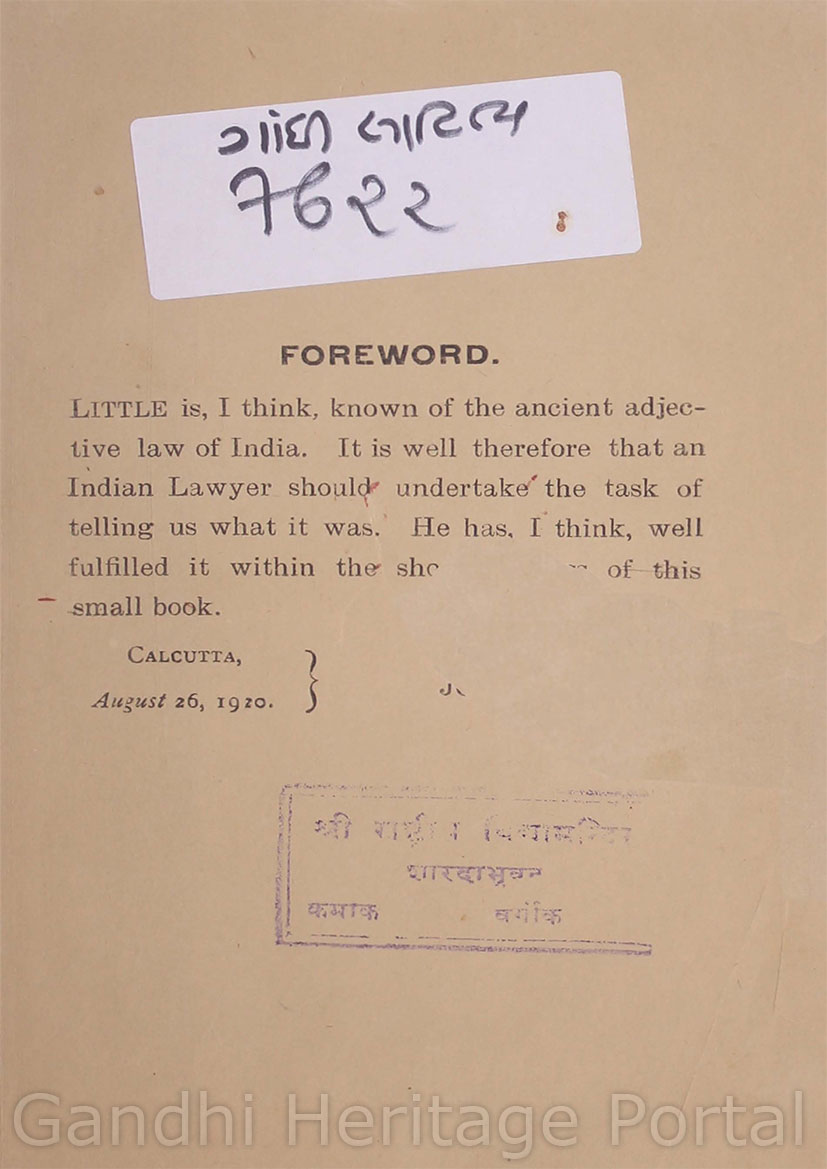 ગાંધી સાહિત્ય
7622
FOREWORD.
LITTLE is, I think, known of the ancient adjec-
tive law of India. It is well therefore that an
Indian Lawyer should undertake the task of
telling us what it was. He has, I think, well
fulfilled it within the of this
small book.
CALCUTTA,
August 26, 1920.
श्री
शारदाभुवन
क्रमांक वर्गांक
Gandhi Heritage Portal